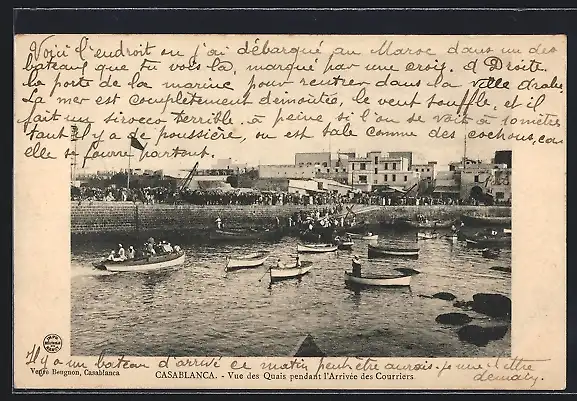 Voici l'endroit ou j'ai débarqué au Maroc dans un des
bateaux que tu vois là, marqué par une croix. à Droite.
la porte de la marine pour rentrer dans la ville arabe.
La mer est complètement démontée, le vent souffle, et il
fait un sirocco terrible. à peine si l'on se voit à 10 mètres
tant il y a de poussière, on est sale comme des cochons, car
elle se fourre partout.
Il y a un bateau d'arrivé ce matin peut être aurais-je une lettre
demain.
Veuve Beugnon, Casablanca
CASABLANCA. - Vue des Quais pendant l'Arrivée des Courriers